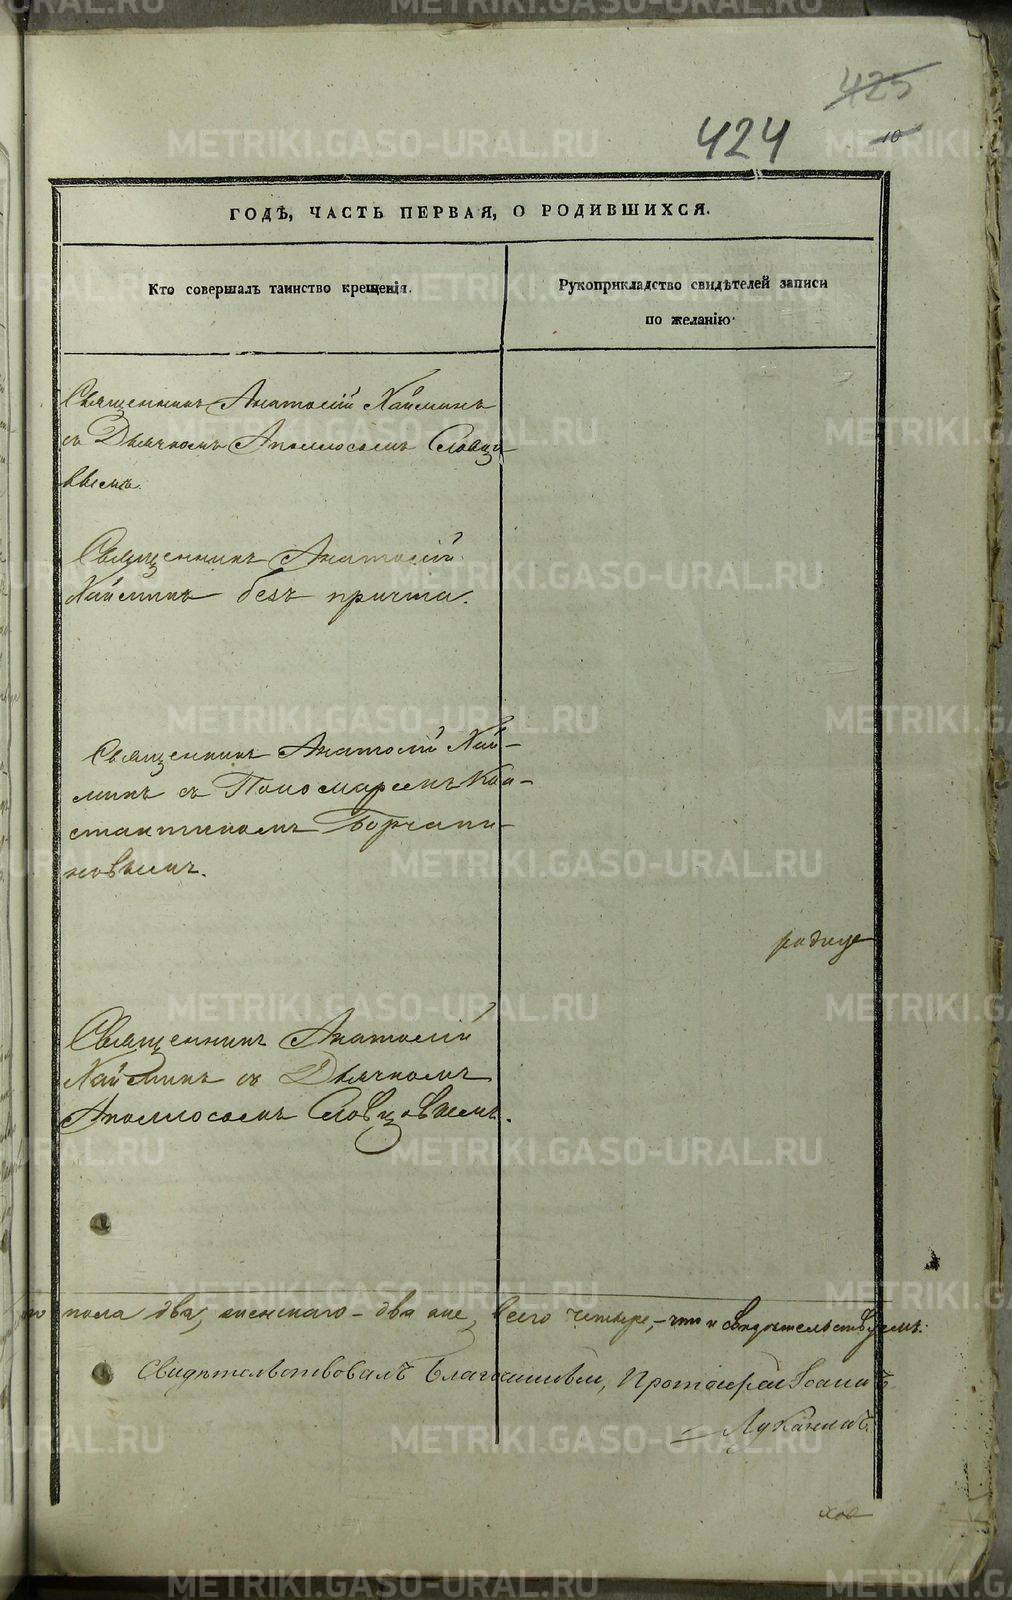 425
424
10
ГОДѢ, ЧАСТЬ ПЕРВАЯ, О РОДИВШИХСЯ.
Кто совершалъ таинство крещенія.
Рукоприкладство свидѣтелей записи
по желанію
Священникъ Анатолій Хайминъ
съ Дьячкомъ Аполлосомъ Словцо
вымъ.
Священникъ Анатолій
Хайминъ безъ причта.
Священникъ Анатолій Хай-
минъ съ Пономаремъ Кон-
стантиномъ Борчани-
новымъ.
Священникъ Анатолій
Хайминъ съ Дьячкомъ
Аполлосомъ Словцовымъ.
го пола два, женскаго - два же, всего четыре, - что и свидѣтельствуемъ:
Свидѣтельствовалъ Благочинный, Протоіерей Іоаннъ
Луканинъ
METRIKI.GASO-URAL.RU